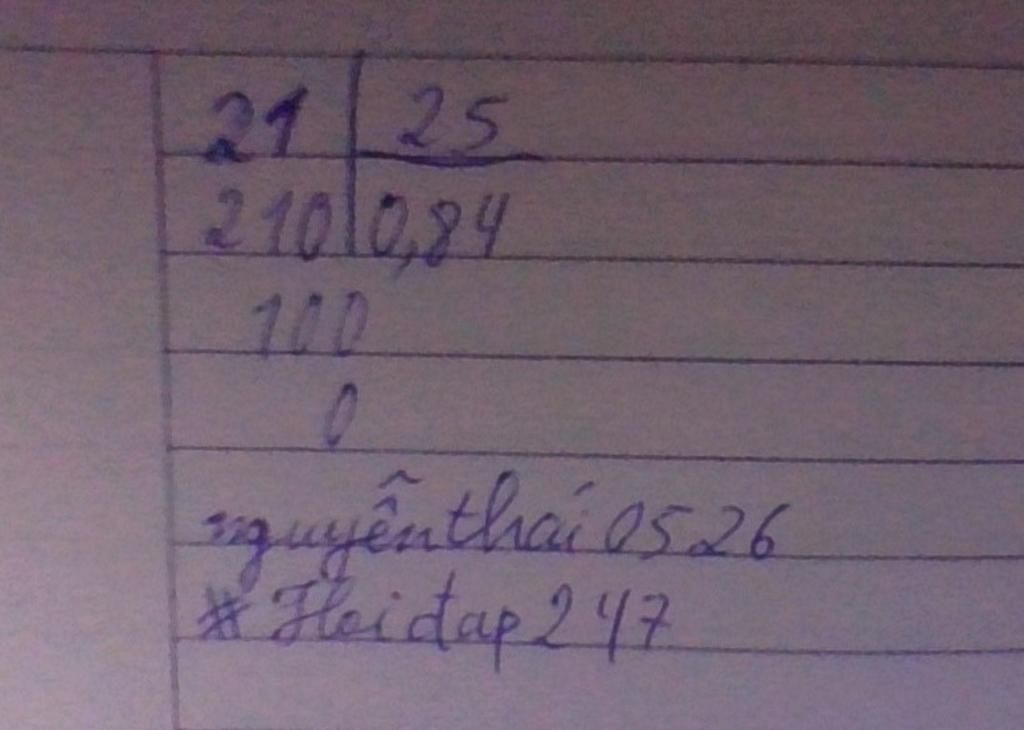 21 25
210 0,84
100
0
nguyễnthái0526
#Hoiđap247